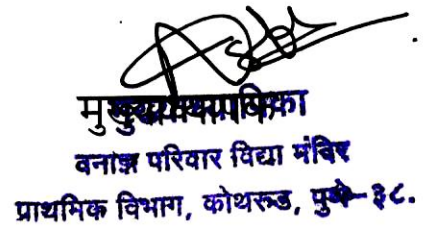 मुख्याध्यापिका
वनाझ परिवार विद्या मंदिर
प्राथमिक विभाग, कोथरूड, पुणे-३८.